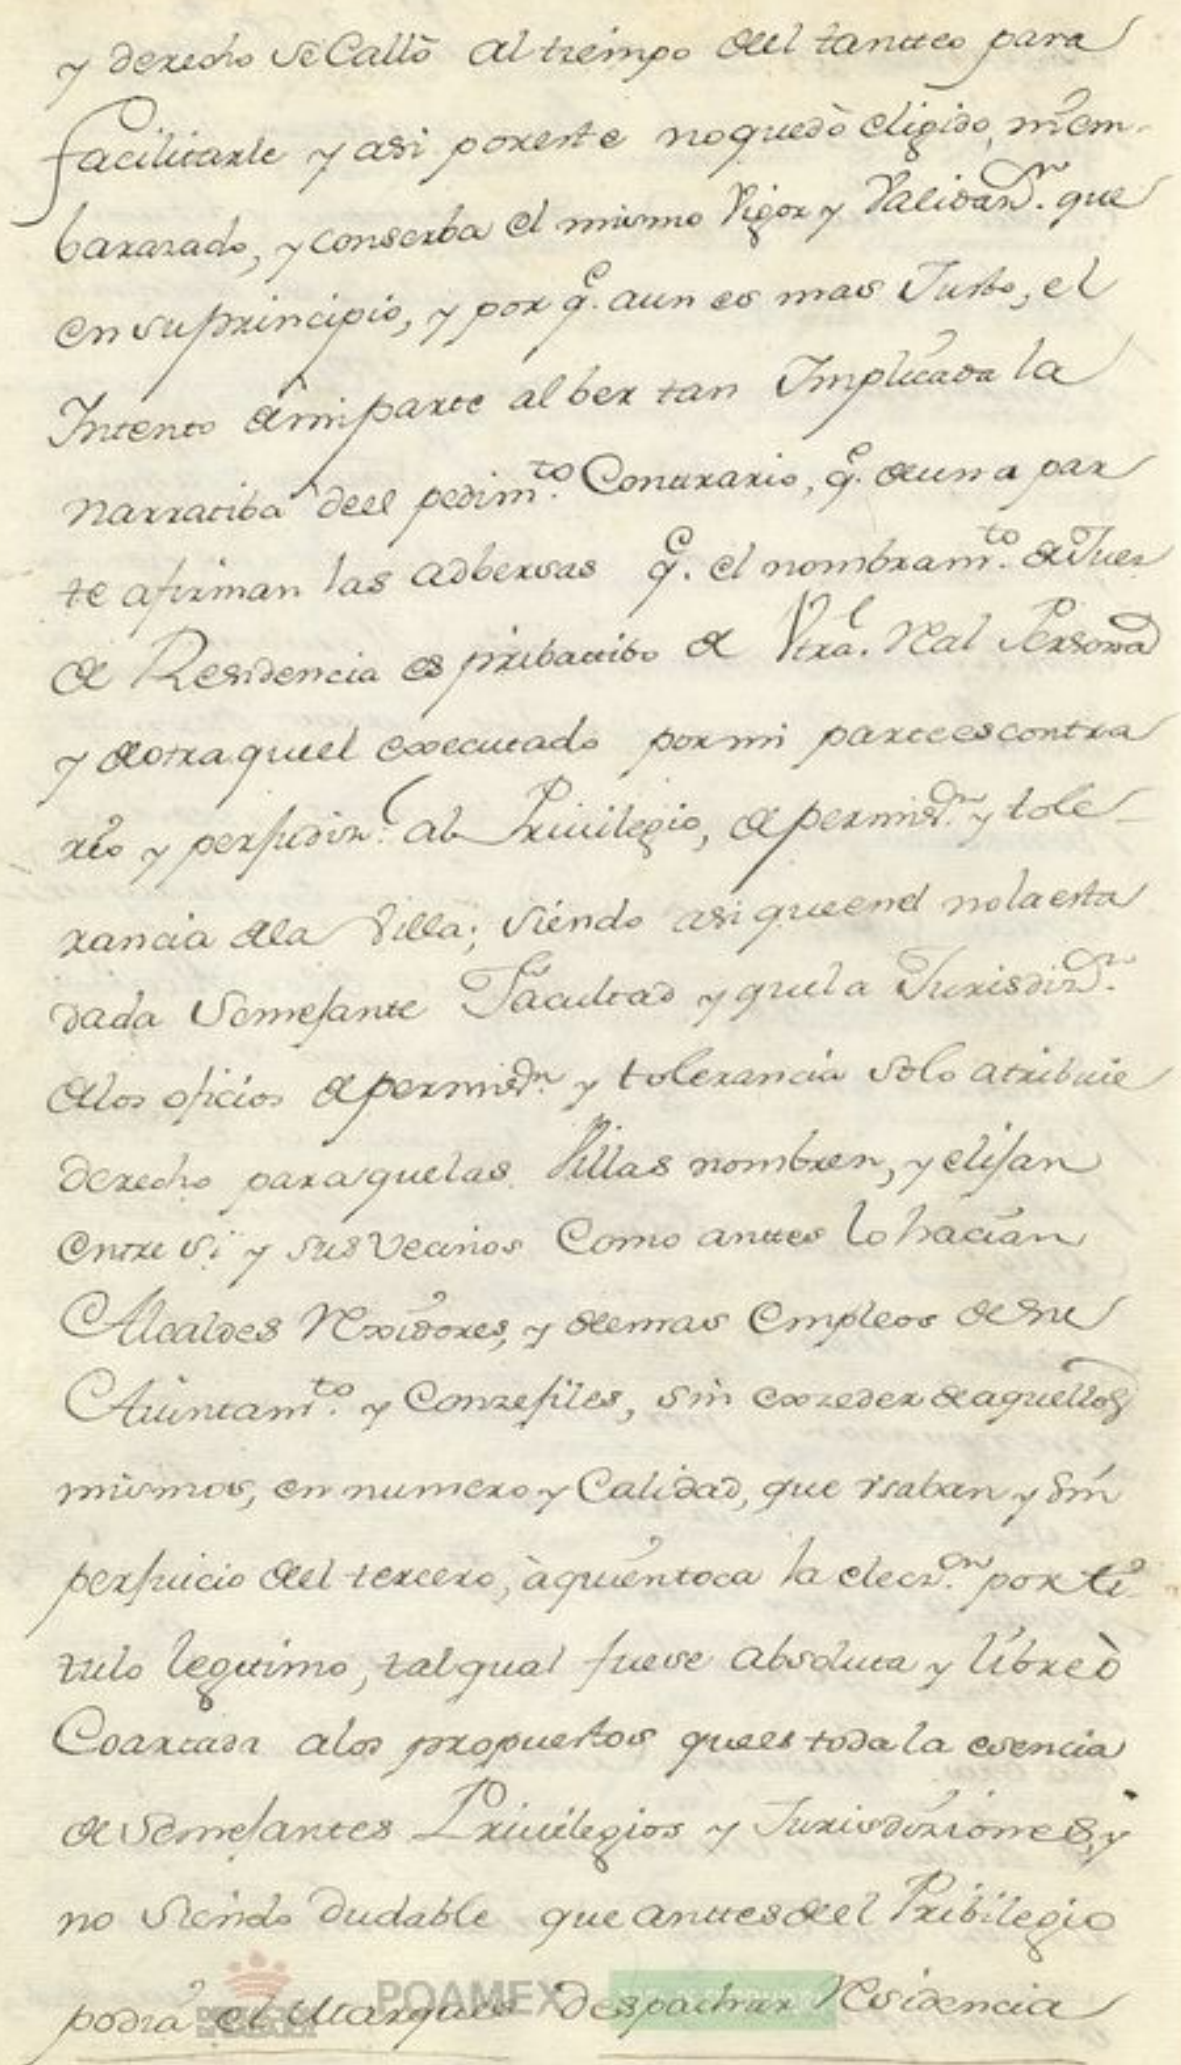 y derecho se Calló al tiempo deel tantteo para
facilitarle y asi por este no quedó eligido, ni em-
barazado, y conserba el mismo Vigor y Validaz.n que
en su principio, y por q.e aun es mas Justo, el
Intento de mi parte al ber tan Implicada la
narratiba deel pedim.to Contrario, q.e de una par
te afirman las adbersas q.e el nombram.to de Juez
de Residencia es pribatibo de Vtra. Real Persona
y de otra que el executado por mi parte es contra
rio y perjudiz.l al Privilegio, de permis.n y tole-
rancia de la Villa; siendo asi que en el no la esta
dada Semejante Facultad y que la Jurisdiz.n
de los oficios de permis.n y tolerancia solo atribuie
derecho para que las Villas nombren, y elijan
entre si y sus Vecinos Como anttes lo hacian
Alcaldes Rexidores, y demas Empleos de su
Aiuntam.to y Conzejiles, sin exzeder de aquellos
mismos, en numero y Calidad, que vsaban y sin
perjuicio del tercero, à quien toca la elecz.on por ti-
tulo legitimo, tal qual fuese absoluta y libre ò
Coartada a los propuestos que es toda la esencia
de Semejantes Privilegios y Jurisdiziones, y
no siendo dudable que anttes deel Pribilegio
podia el Marques despachar Residencia
POAMEX